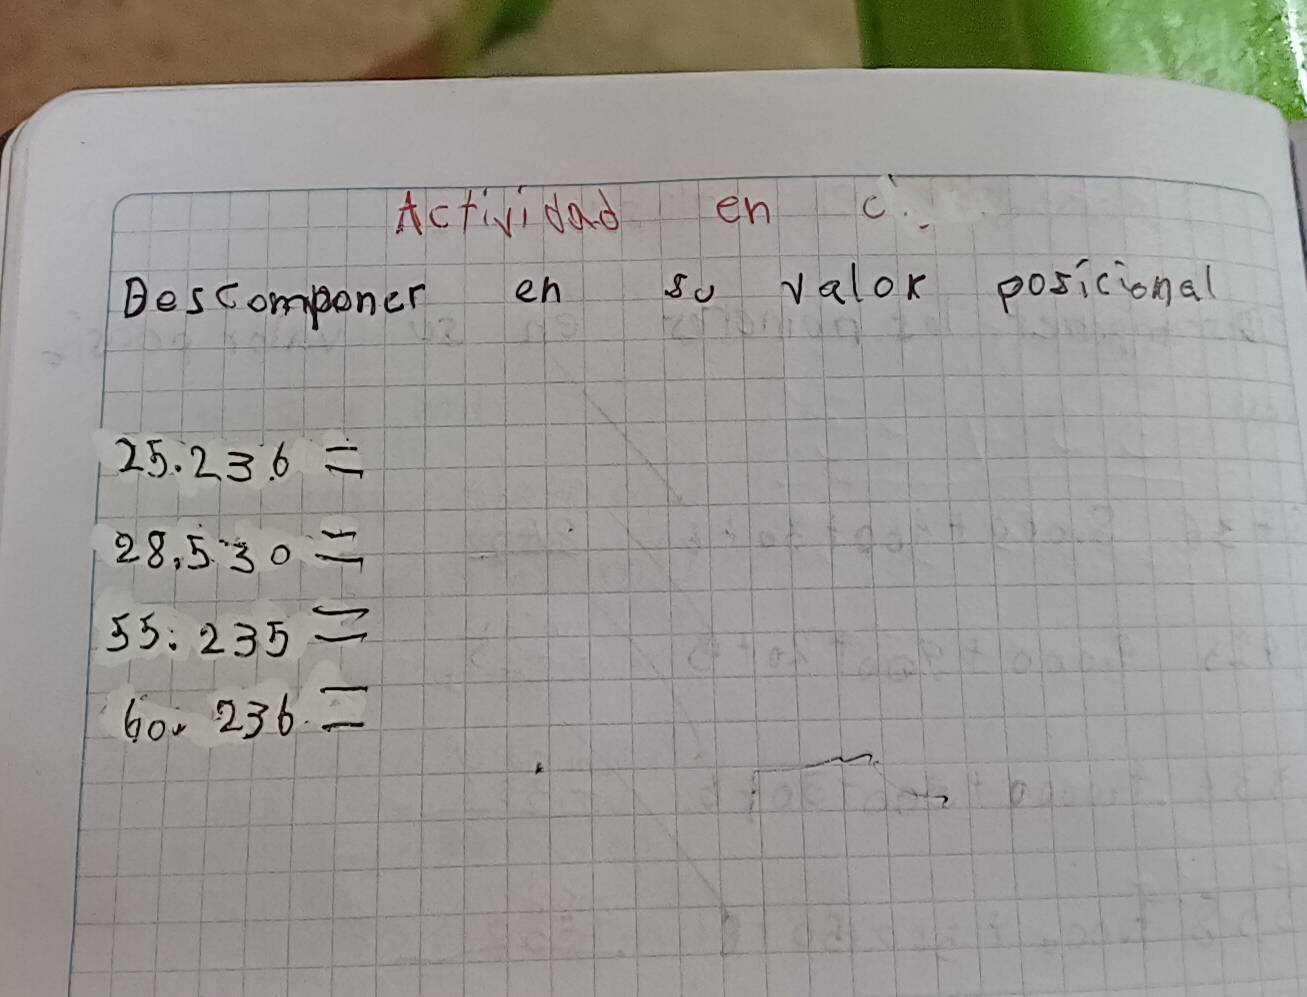 Actividad en c.
Descomponer en su valor posicional
25.236 =
28.530 =
55.235 =
60.236 =